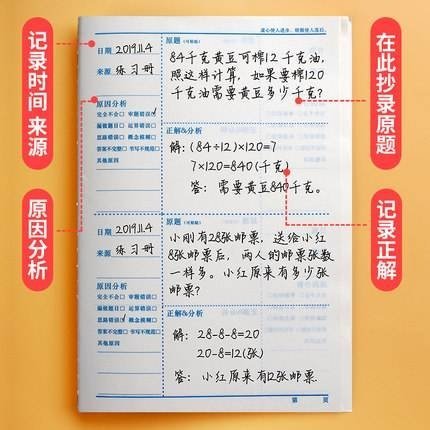 虚心使人进步，骄傲使人落后。
记录时间 来源
在此抄录原题
原因分析
记录正解
日期 2019.11.4
来源 练习册
原因分析
完全不会□ 审题错误☑
漏做题目□ 运算错误□
思路错误□ 概念模糊□
答案不完整□ 书写不规范□
其他原因
原题(可粘贴)
84千克黄豆可榨12千克油，
照这样计算，如果要榨120
千克油需要黄豆多少千克？
正解&分析
解：(84÷12)×120=7
7×120=840(千克)
答：需要黄豆840千克。
日期 2019.11.4
来源 练习册
原因分析
完全不会□ 审题错误□
漏做题目□ 运算错误□
思路错误☑ 概念模糊□
答案不完整□ 书写不规范□
其他原因
原题(可粘贴)
小刚有28张邮票，送给小红
8张邮票后，两人的邮票张数
一样多。小红原来有多少张
邮票？
正解&分析
解：28-8-8=20
20-8=12(张)
答：小红原来有12张邮票
第 页